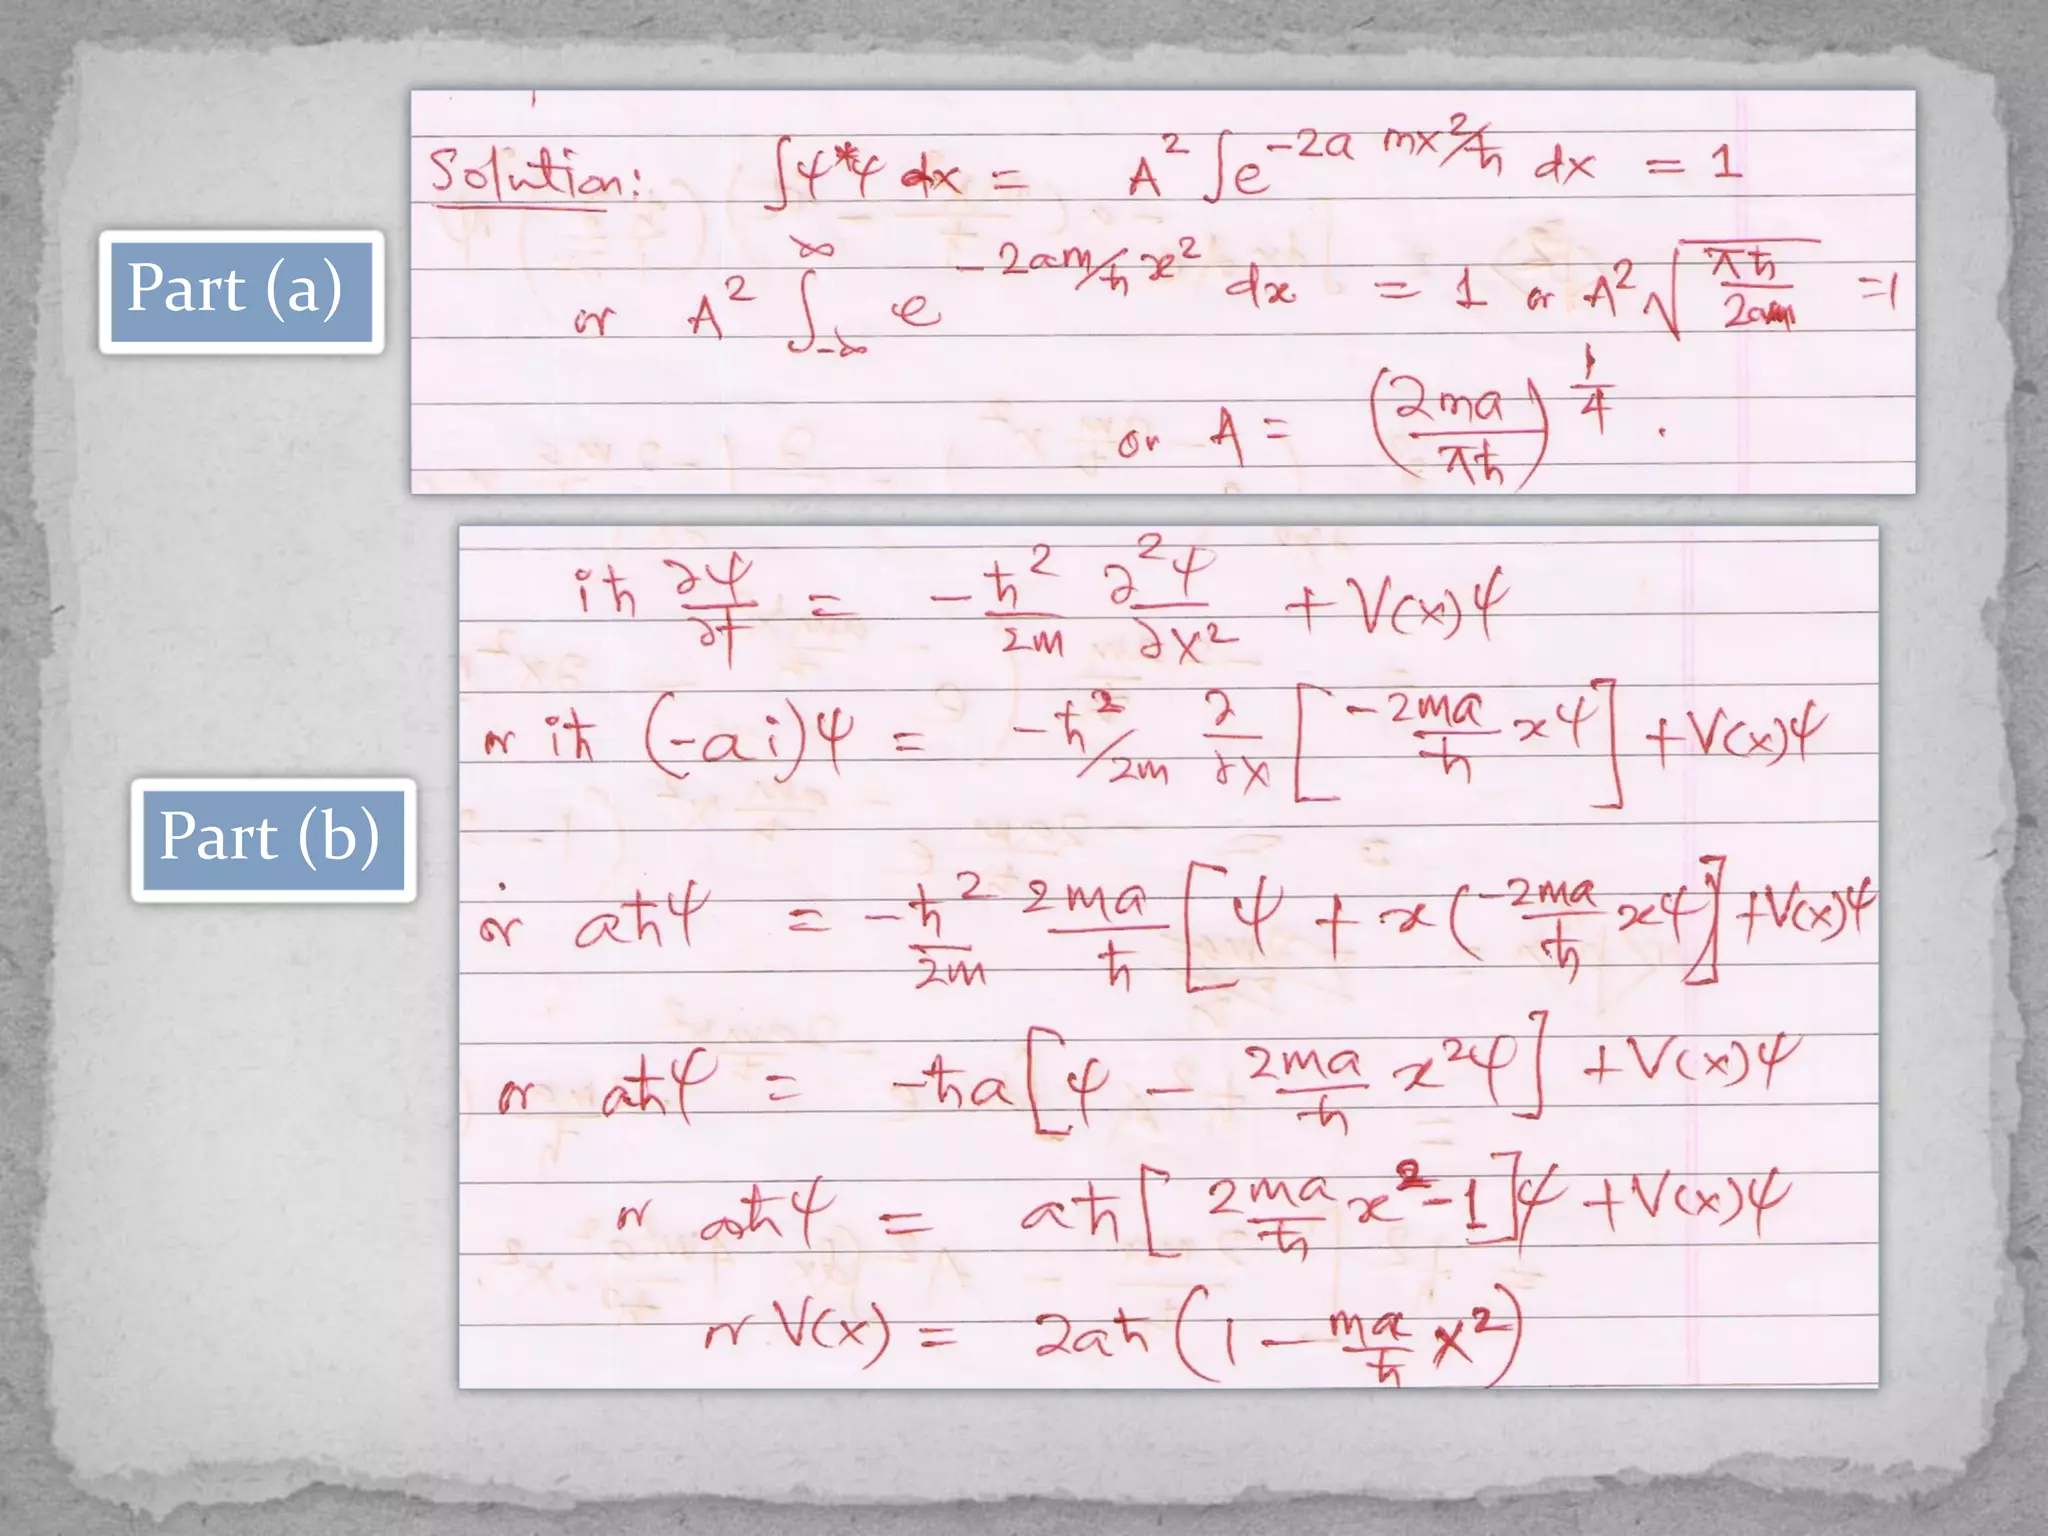 Part (a)
Solution: ∫ψ*ψ dx = A² ∫e^(-2a mx²/ħ) dx = 1
or A² ∫_{-∞}^{∞} e^(-2am/ħ x²) dx = 1 or A² √(πħ/2am) = 1
or A = (2ma/πħ)^(1/4).
Part (b)
iħ ∂ψ/∂t = -ħ²/2m ∂²ψ/∂x² + V(x)ψ
or iħ (-ai)ψ = -ħ²/2m ∂/∂x [-2ma/ħ xψ] + V(x)ψ
or aħψ = -ħ²/2m 2ma/ħ [ψ + x(-2ma/ħ xψ] + V(x)ψ
or aħψ = -ħa[ψ - 2ma/ħ x²ψ] + V(x)ψ
or aħψ = aħ[2ma/ħ x² - 1]ψ + V(x)ψ
or V(x) = 2aħ(1 - ma/ħ x²)